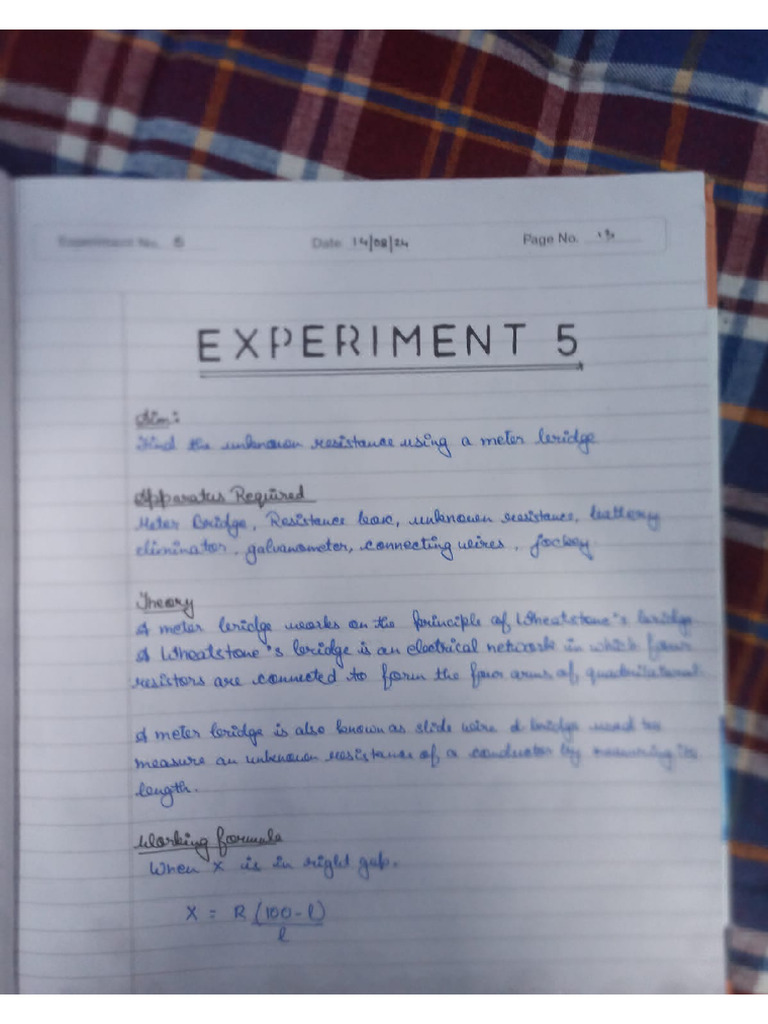 Experiment No. 5 Date 14/08/24 Page No.
EXPERIMENT 5
Aim:
Find the unknown resistance using a meter bridge
Apparatus Required
Meter Bridge, Resistance box, unknown resistance, battery
eliminator, galvanometer, connecting wires, jockey
Theory
A meter bridge works on the principle of Wheatstone's bridge
A Wheatstone's bridge is an electrical network in which four
resistors are connected to form the four arms of quadrilateral
A meter bridge is also known as slide wire bridge used to
measure an unknown resistance of a conductor by measuring its
length.
Working formula
When X is in right gap.
X = R (100 - l)
l